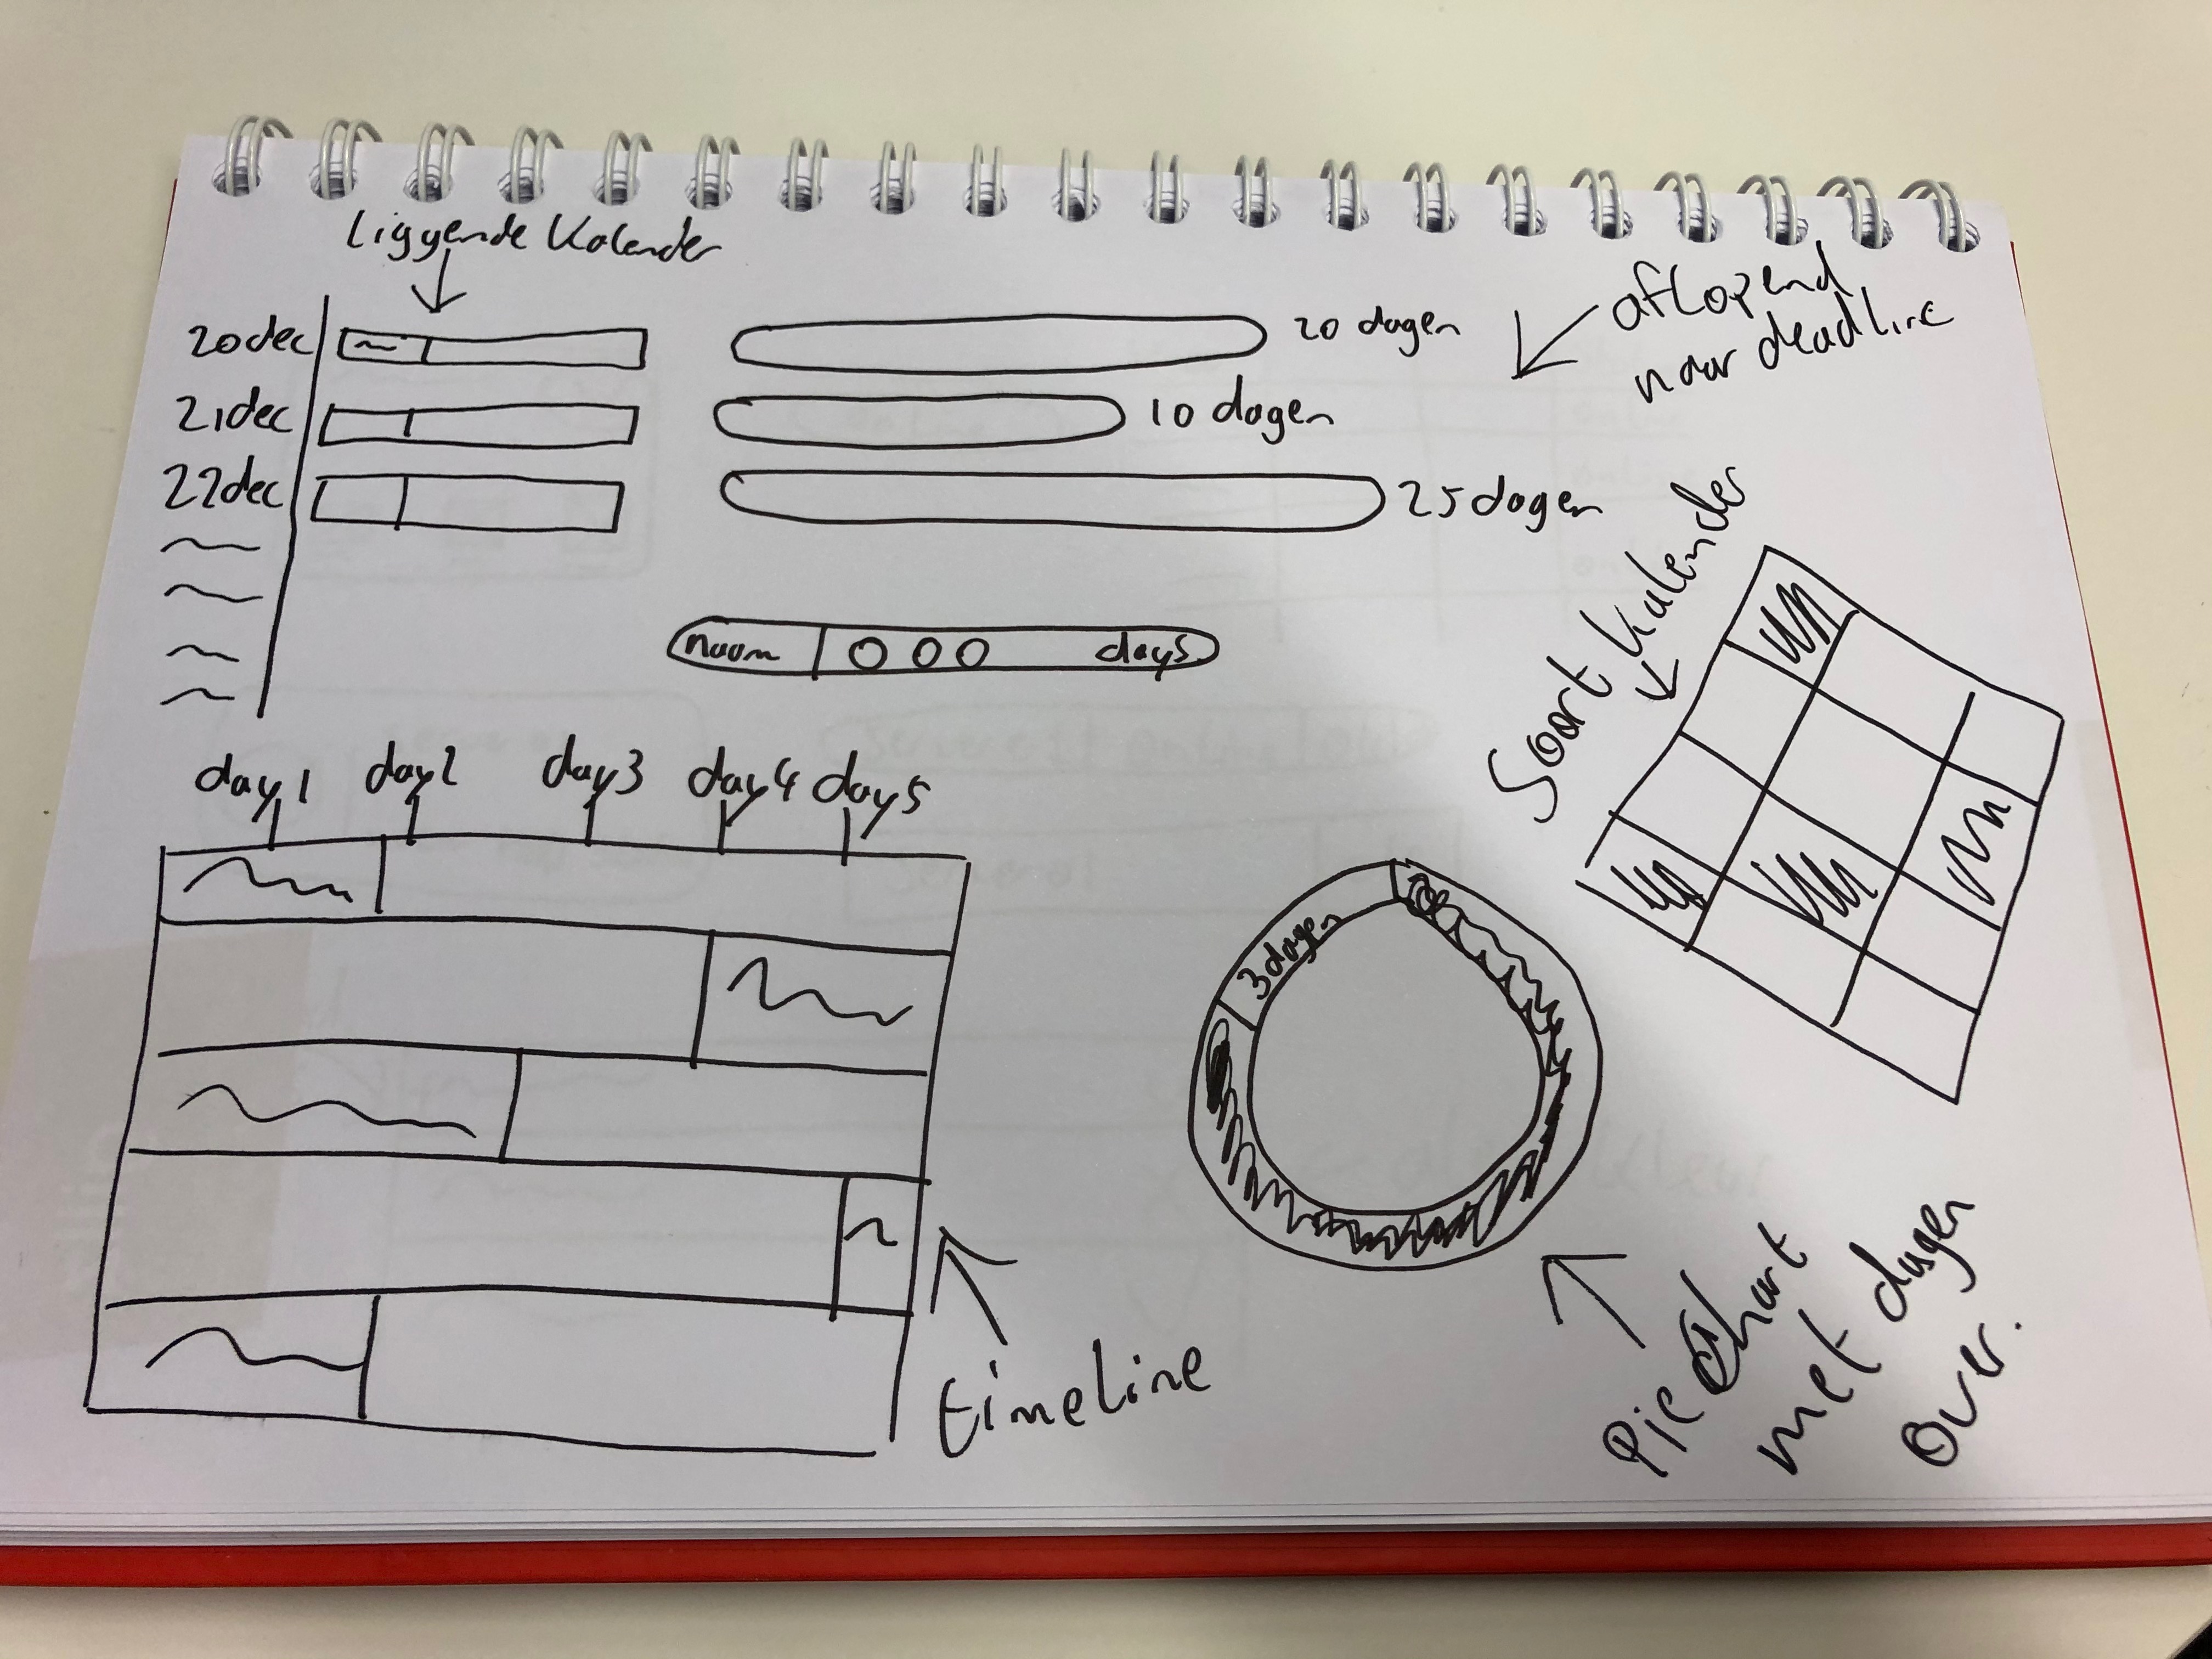 Liggende Kalender
20dec
21dec
22dec
20 dagen
10 dagen
25 dagen
aflopend
naar deadline
naam
days
Soort Kalender
day1 day2 day3 day4 day5
timeline
3 dagen
Pie chart
met dagen
over.